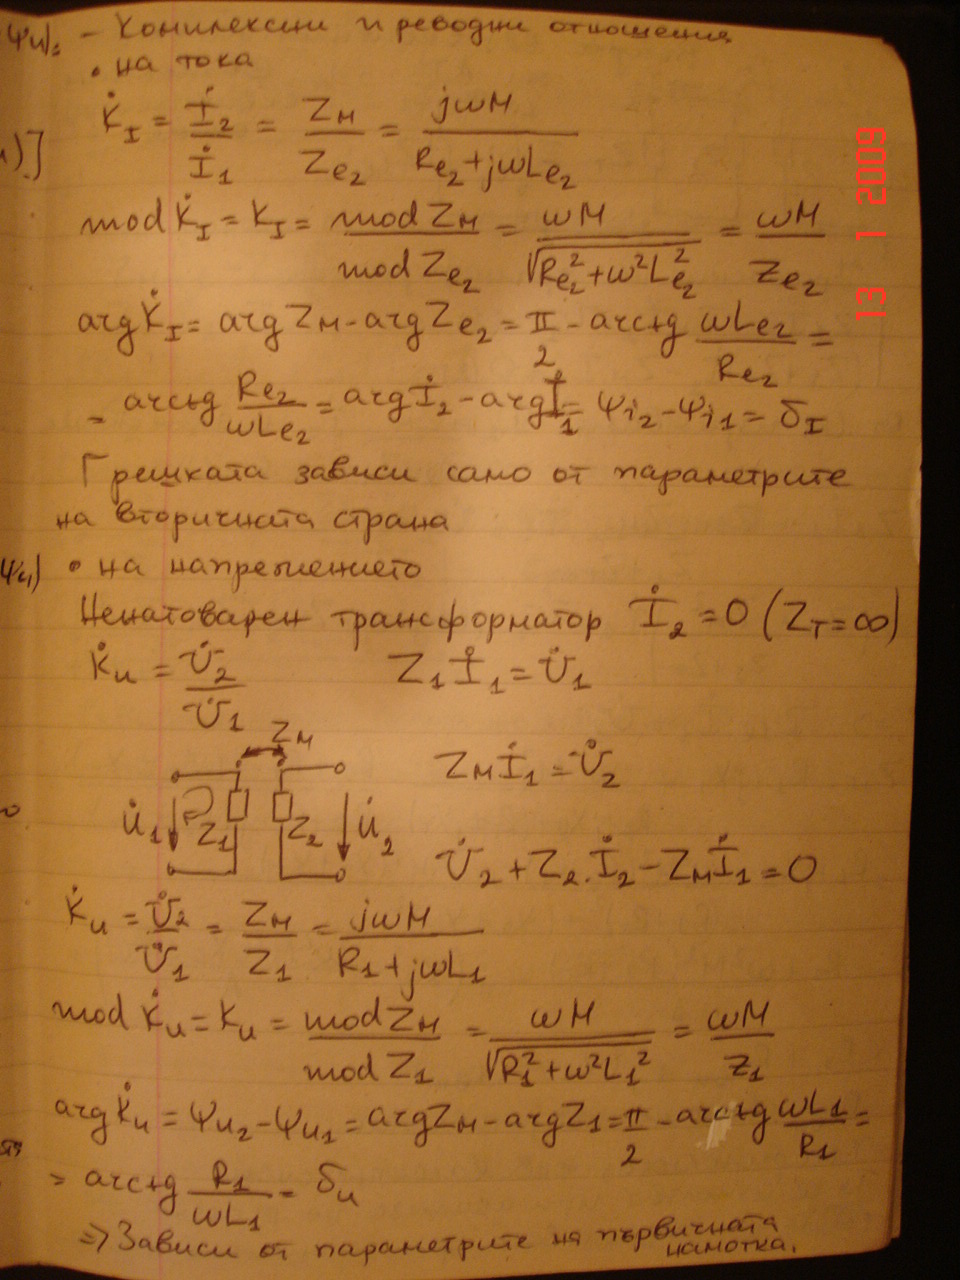 ψu)=
- Комплексни преводни отношения
• на тока
K̇_I = İ_2/İ_1 = Z_M/Z_e2 = jωM/(R_e2+jωL_e2)
)]
mod K̇_I = K_I = mod Z_M/mod Z_e2 = ωM/√(R_e2²+ω²L_e2²) = ωM/z_e2
arg K̇_I = arg Z_M - arg Z_e2 = π/2 - arctg ωL_e2/R_e2 =
= arctg R_e2/ωL_e2 = arg İ_2 - arg İ_1 = ψ_i2 - ψ_i1 = δ_I
Грешката зависи само от параметрите
на вторичната страна
• на напрежението
Ненатоварен трансформатор İ_2 = 0 (Z_T=∞)
K̇_u = U̇_2/U̇_1 Z_1 İ_1 = U̇_1
Z_M
Z_M İ_1 = U̇_2
U̇_1 Z_1 Z_2 U̇_2
U̇_2 + Z_2.İ_2 - Z_M İ_1 = 0
K̇_u = U̇_2/U̇_1 = Z_M/Z_1 = jωM/(R_1+jωL_1)
mod K̇_u = K_u = mod Z_M/mod Z_1 = ωM/√(R_1²+ω²L_1²) = ωM/z_1
arg K̇_u = ψ_u2 - ψ_u1 = arg Z_M - arg Z_1 = π/2 - arctg ωL_1/R_1 =
= arctg R_1/ωL_1 = δ_u
=> Зависи от параметрите на първичната
намотка.
13 1 2009